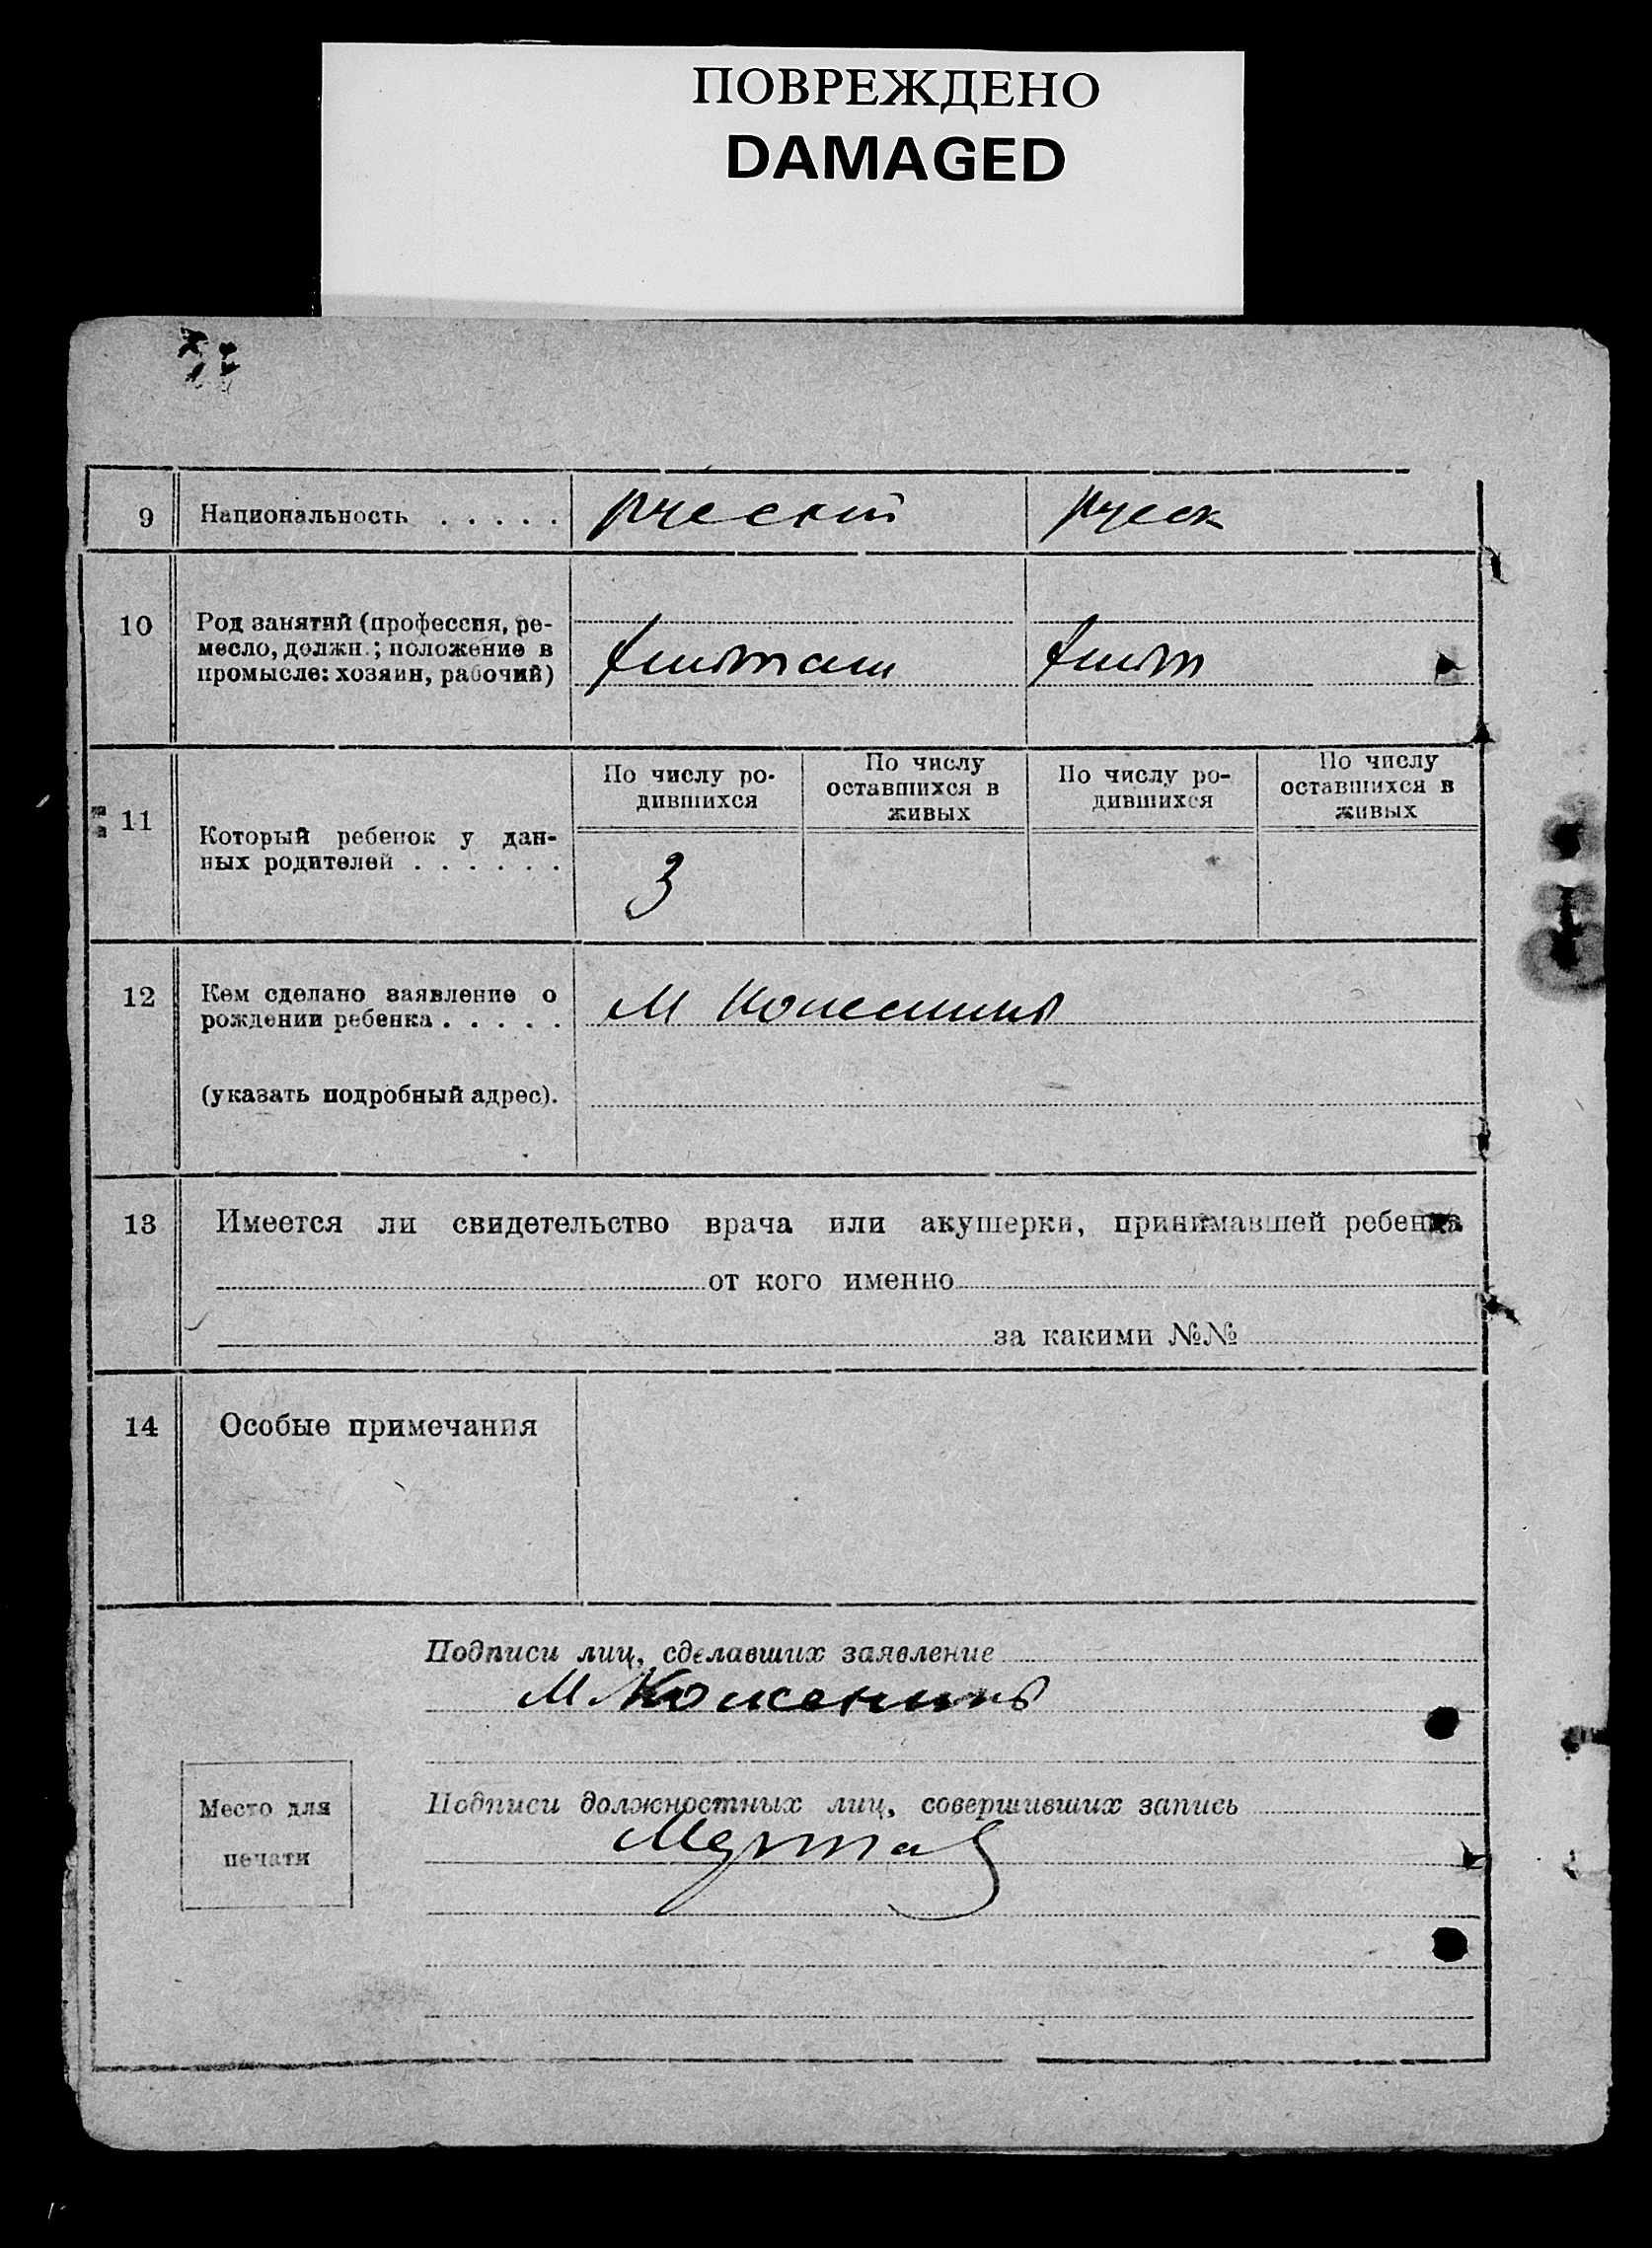 ПОВРЕЖДЕНО
DAMAGED
9 Национальность . . . . . русский руск
10 Род занятий (профессия, ре-
месло, должн.; положение в
промысле: хозяин, рабочий)
11 Который ребенок у дан-
ных родителей . . . . . .
По числу ро-
дившихся
По числу
оставшихся в
живых
По числу ро-
дившихся
По числу
оставшихся в
живых
3
12 Кем сделано заявление о
рождении ребенка . . . . . М
(указать подробный адрес).
13 Имеется ли свидетельство врача или акушерки, принимавшей ребенка
от кого именно
за какими №№
14 Особые примечания
Подписи лиц, сделавших заявление
М
Место для
печати
Подписи должностных лиц, совершивших запись